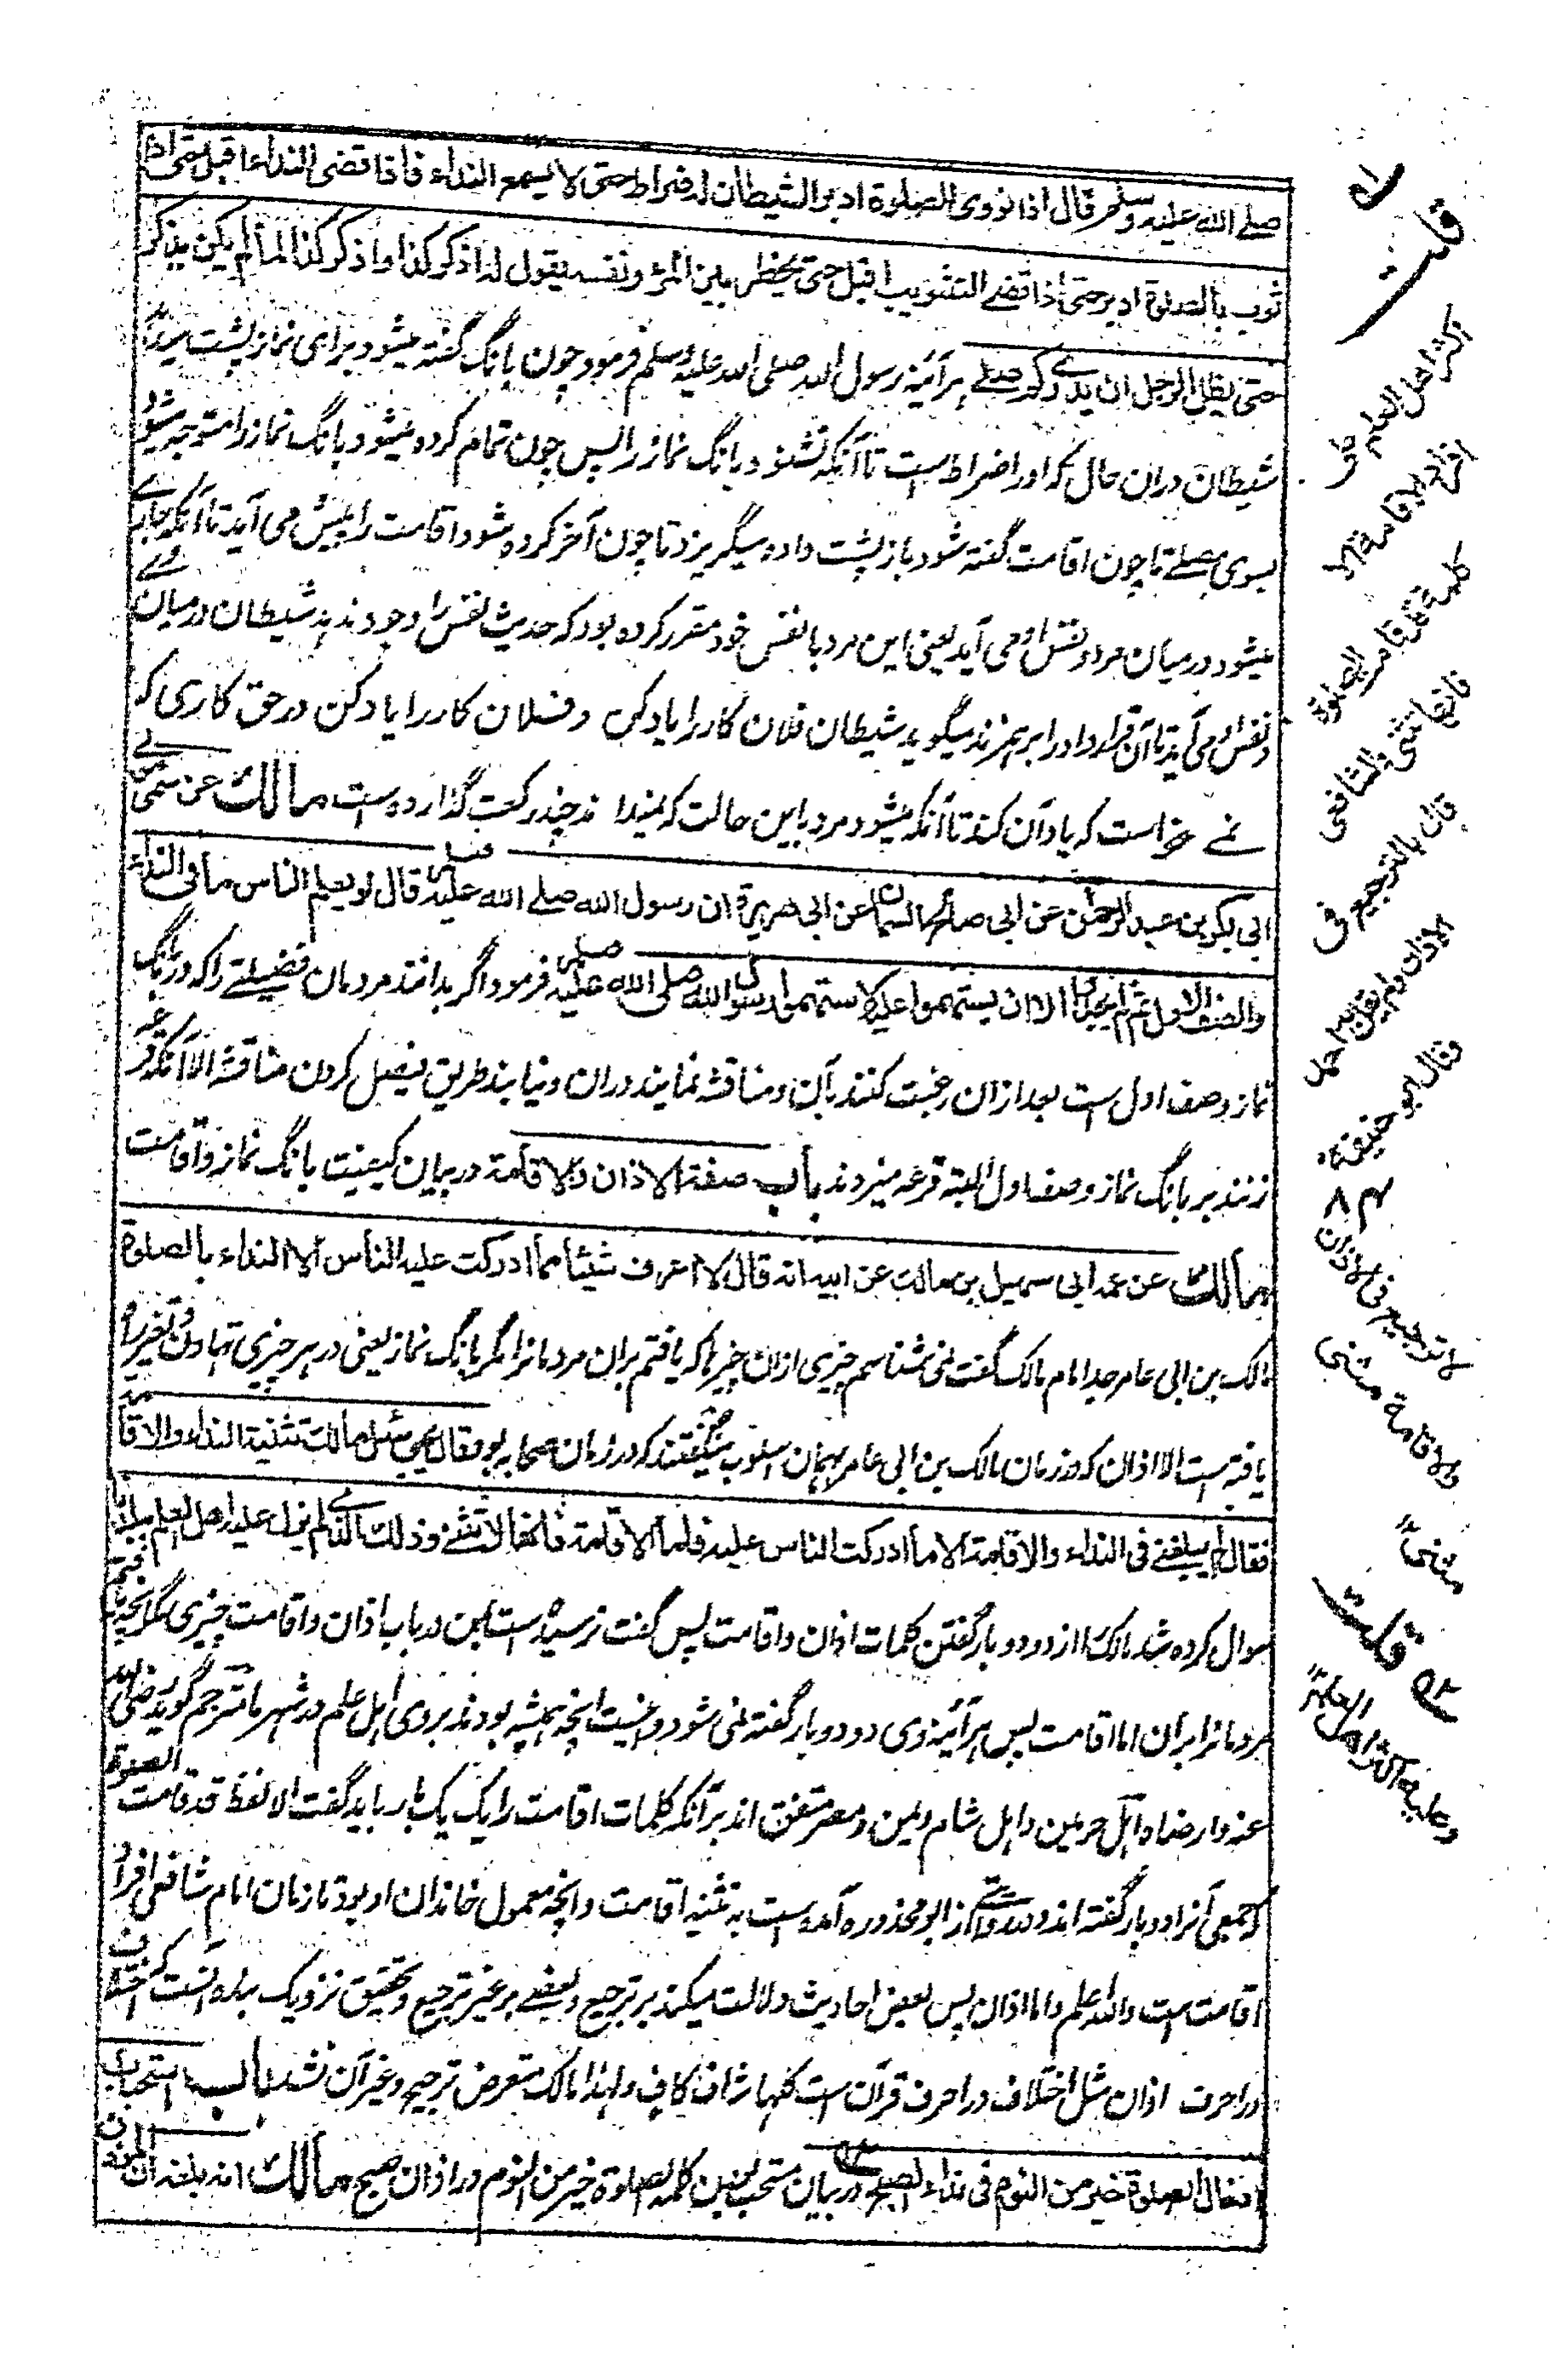 صلے الله عليه وسلم قال اذا نودى للصلوة ادبر الشيطان له ضراط حتى لا يسمع النداء فاذا قضى النداء اقبل حتى اذا
ثوب بالصلوة ادبر حتى اذا قضے التثويب اقبل حتى يخطر بين المرء ونفسه يقول له اذكر كذا واذكر كذا لما لم يكن يذكر
حتى يظل الرجل ان يدرے كم صلے ہر آئینہ رسول الله صلی الله علیه وسلم فرمود چون بانگ گفته میشود برای نماز پشت میدہد
شیطان دران حال که اورا ضراط است تا آنکه نشنود بانگ نماز را پس چون تمام کرده میشود بانگ نماز را متوجه میشود
بسوی مصلے تا چون اقامت گفته شود باز پشت داده میگریزد تا چون آخر کرده شود اقامت را پیش می آید تا آنکه
میشود درمیان مرد و نفس او می آید یعنی این مرد با نفس خود مقرر کرده بود که حدیث نفس را وجود ندہد شیطان درمیان
و نفس او می آید تا آن قرارداد را برہم زند میگوید شیطان فلان کار را یاد کن و فلان کار را یاد کن در حق کاری که
نمے خواست که یاد آن کند تا آنکه میشود مرد باین حالت که نمیداند چند رکعت گذارده است مالك عن سمى مولے
ابى بكر بن عبد الرحمن عن ابى صالح السمان عن ابى هريرة ان رسول الله صلے الله عليه وسلم قال لو يعلم الناس ما فى النداء
والصف الاول ثم لم يجدوا الا ان يستهموا عليه لاستهموا رسول الله صلى الله عليه وسلم فرمود اگر بدانند مردمان فضیلتے را که در بانگ
نماز و صف اول است بعد ازان رغبت کنند بآن و مناقشه نمایند دران و نیابند طریق فیصل کردن مناقشه الا آنکه قرعه
زنند بر بانگ نماز و صف اول البته قرعه میزدند باب صفة الاذان والاقامة در بیان کیفیت بانگ نماز و اقامت
مالك عن عمه ابى سهيل بن مالك عن ابيه انه قال لا اعرف شيئا مما ادركت عليه الناس الا النداء بالصلوة
مالک بن ابی عامر جد امام مالک گفت نمی شناسم چیزی ازان چیزہا که یافتم بران مردمانرا مگر بانگ نماز یعنی در ہر چیزی تہاون و تغیر راه
یافته است الا اذان که در زمان مالک بن ابی عامر بہمان اسلوب میگفتند که در زمان صحابه بود قال يحيى سئل مالك تثنية النداء والاقامة
فقال لم يبلغنے فى النداء والاقامة الا ما ادركت الناس عليه فاما الاقامة فانها لا تثنے وذلك الذے لم يزل عليه اهل العلم ببلدنا
سوال کرده شد مالک را از دو دو بار گفتن کلمات اذان و اقامت پس گفت نرسیده است بمن در باب اذان و اقامت چیزی مگر آنچه یافتم
مردمانرا بران اما اقامت پس ہر آئینه وی دو دو بار گفته نمی شود و اینست آنچه ہمیشه بودند بروی اہل علم در شہر ما مترجم گوید رضی الله
عنه وارضاه اہل حرمین و اہل شام و یمن و مصر متفق اند برآنکه کلمات اقامت را یک یک بار باید گفت الا لفظ قد قامت الصلوة
که جمعی آنرا دو بار گفته اند و روایتے از ابو محذوره آمده است به تثنیه اقامت و آنچه معمول خاندان او بود تا زمان امام شافعی افراد
اقامت است والله اعلم واما اذان پس بعض احادیث دلالت میکند بر ترجیع و بعضے بر غیر ترجیع و تحقیق نزدیک بنده آنست که اختلاف
در احرف اذان مثل اختلاف در احرف قرآن است کلها شاف کاف ولہذا مالک متعرض ترجیع و غیر آن نشد باب استحباب
ان يقال الصلوة خير من النوم فى نداء الصبح در بیان مستحب بودن کلمه الصلوة خیر من النوم در اذان صبح مالك انه بلغه ان المؤذن
قلت
اكثر اهل العلم على
افراد الاقامة الا
كلمة قد قامت الصلوة
فانها مثنى والشافعى
قال بالترجيع فى
الاذان
وقال ابو حنيفة
لا ترجيع فى الاذان
والاقامة مثنى
مثنى
قلت
وعليه اكثر اهل العلم